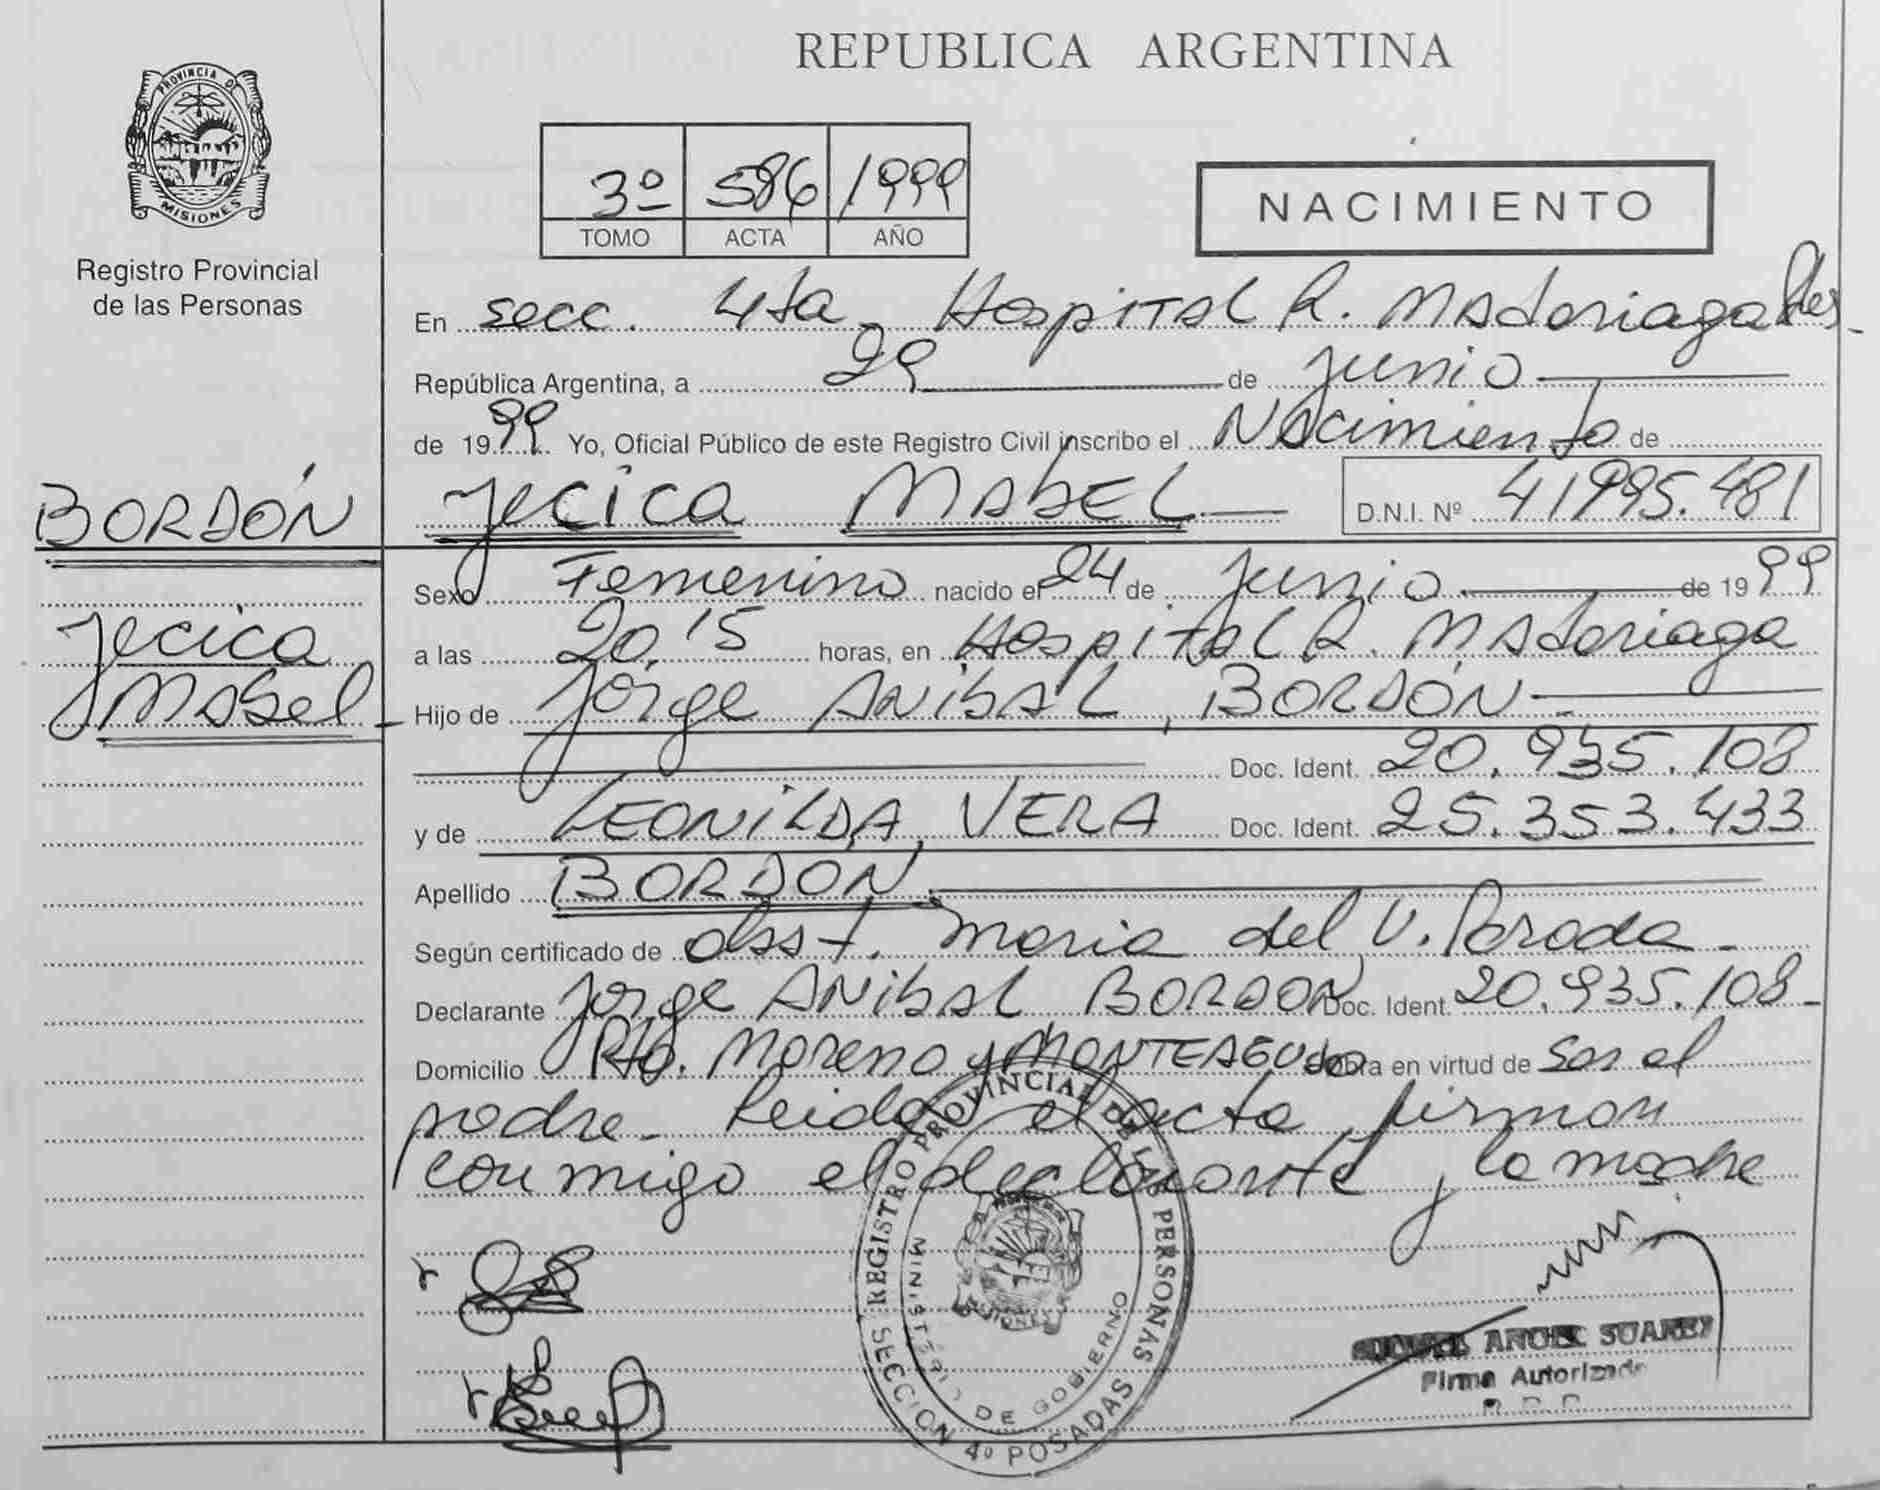 REPUBLICA ARGENTINA
PROVINCIA DE
MISIONES
Registro Provincial
de las Personas
3º 586 1999
TOMO ACTA AÑO
NACIMIENTO
En secc. 4ta Hospital R. Madariaga
República Argentina, a 29 de junio
de 1999 Yo, Oficial Público de este Registro Civil inscribo el Nacimiento de
BORDÓN Jecica Mabel D.N.I. Nº 41995.481
Sexo Femenino nacido el 24 de junio de 1999
Jecica
Mabel
a las 20,15 horas, en Hospital R. Madariaga
Hijo de Jorge Anibal, BORDÓN
Doc. Ident. 20.935.108
y de LEONILDA, VERA Doc. Ident. 25.353.433
Apellido BORDON
Según certificado de Obst. Maria del V. Parada
Declarante Jorge Anibal BORDON Doc. Ident. 20.935.108
Domicilio Pto. Moreno y MONTEAGUDO obra en virtud de ser el
padre. Leida el acta, firman
conmigo el declarante y la madre
REGISTRO PROVINCIAL DE LAS PERSONAS
MINISTERIO DE GOBIERNO
SECCION 4º POSADAS
ANGEL SUAREZ
Firma Autorizada